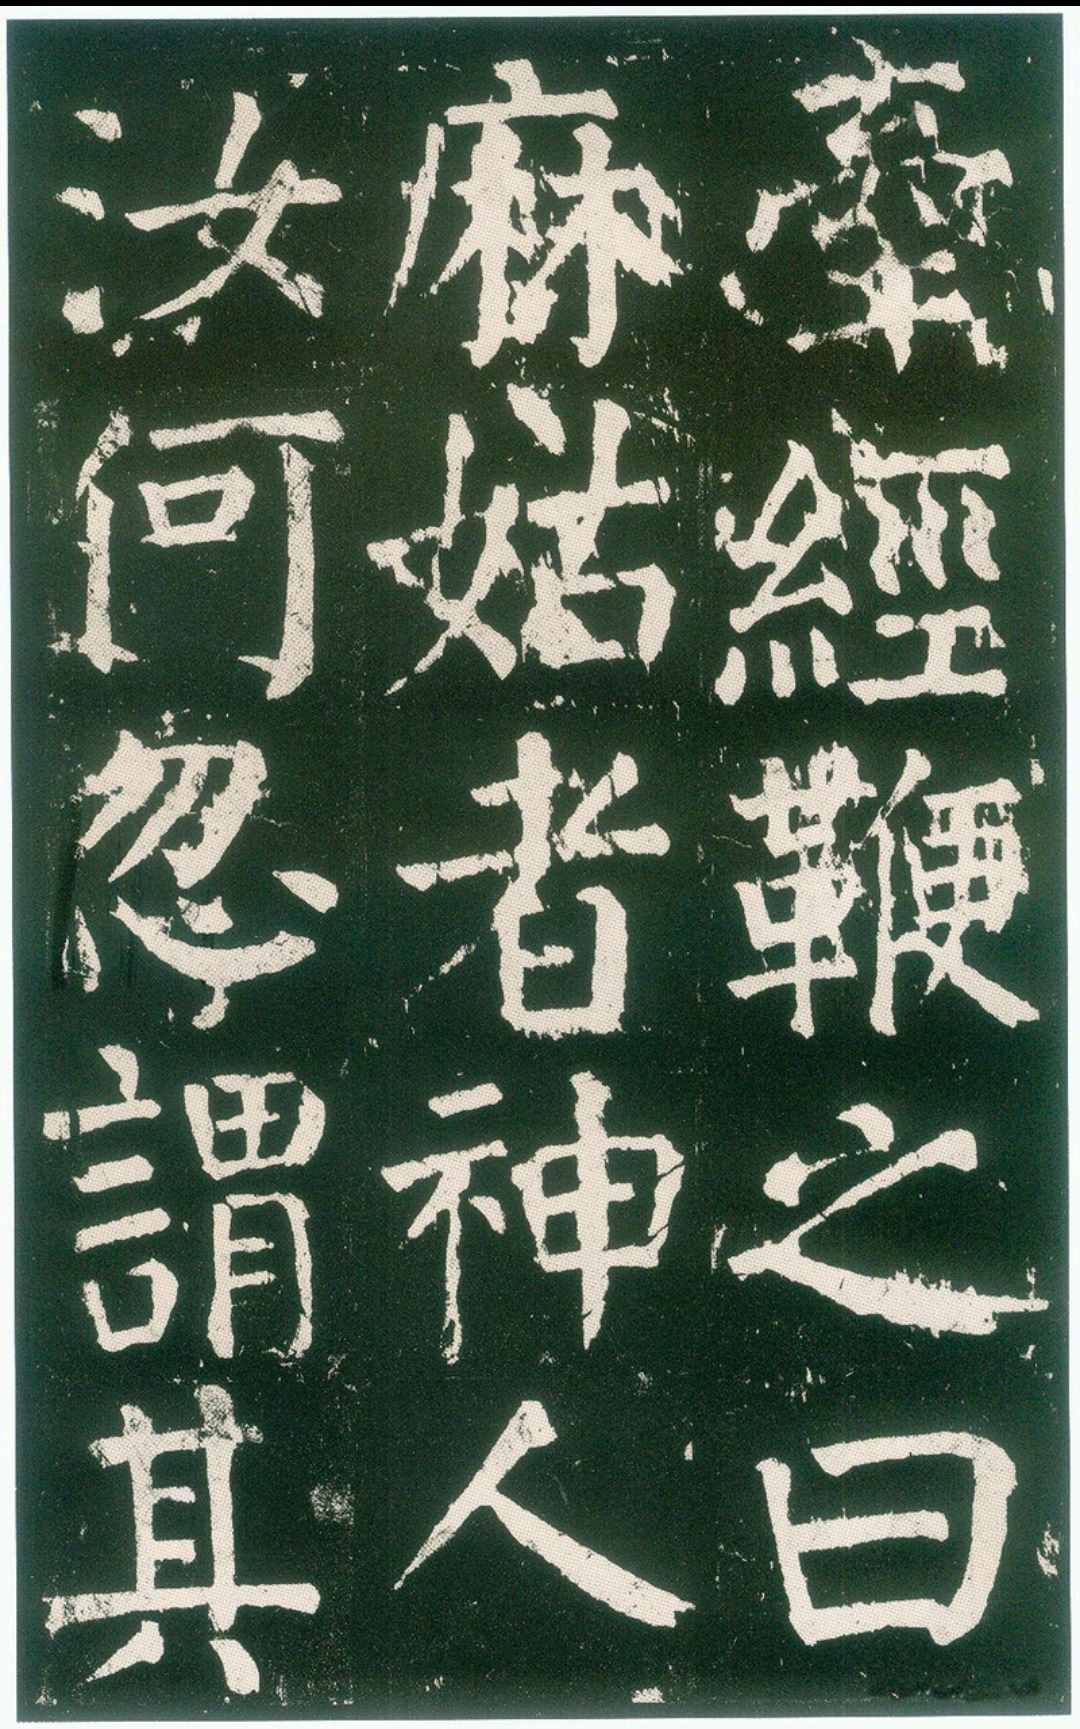 牽經鞭之曰
麻姑者神人
汝何忽謂其